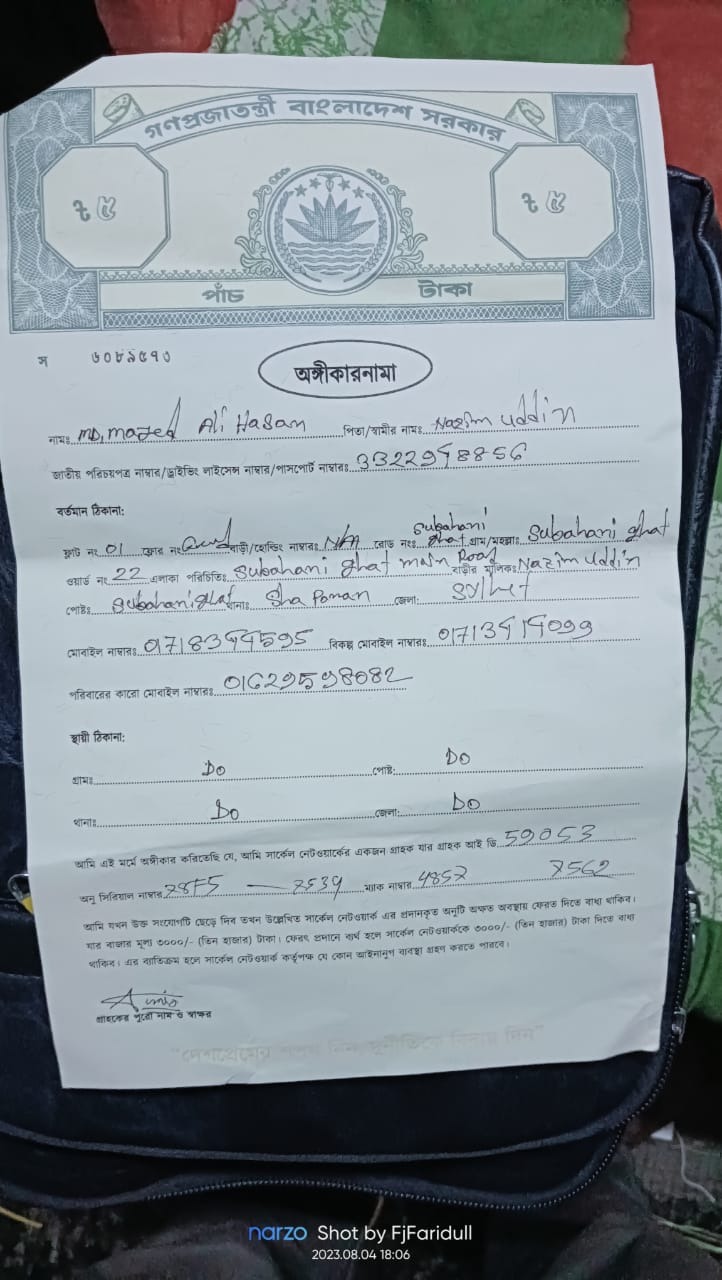 গণপ্রজাতন্ত্রী বাংলাদেশ সরকার
৳ ৫ ৳ ৫
পাঁচ টাকা
স ৬০৮৯৫৭০
অঙ্গীকারনামা
নামঃ MD, Mazed Ali Hasan পিতা/স্বামীর নামঃ Nazim Uddin
জাতীয় পরিচয়পত্র নাম্বার/ড্রাইভিং লাইসেন্স নাম্বার/পাসপোর্ট নাম্বারঃ
বর্তমান ঠিকানা:
ফ্লাট নং 01 ফ্লোর নং বাড়ী/হোল্ডিং নাম্বারঃ N/A রোড নংঃ Subahani ghat গ্রাম/মহল্লাঃ Subahani ghat
ওয়ার্ড নং 22 এলাকা পরিচিতিঃ Subahani ghat main Road বাড়ীর মালিকঃ Nazim Uddin
পোষ্টঃ Subahanighat থানাঃ Sha Poran জেলা: Sylhet
মোবাইল নাম্বারঃ বিকল্প মোবাইল নাম্বারঃ
পরিবারের কারো মোবাইল নাম্বারঃ
স্থায়ী ঠিকানা:
গ্রামঃ Do পোষ্ট: Do
থানাঃ Do জেলা: Do
আমি এই মর্মে অঙ্গীকার করিতেছি যে, আমি সার্কেল নেটওয়ার্কের একজন গ্রাহক যার গ্রাহক আই ডি 59053
অনু সিরিয়াল নাম্বার ম্যাক নাম্বার
আমি যখন উক্ত সংযোগটি ছেড়ে দিব তখন উল্লেখিত সার্কেল নেটওয়ার্ক এর প্রদানকৃত অনুটি অক্ষত অবস্থায় ফেরত দিতে বাধ্য থাকিব।
যার বাজার মূল্য ৩০০০/- (তিন হাজার) টাকা। ফেরৎ প্রদানে ব্যর্থ হলে সার্কেল নেটওয়ার্ককে ৩০০০/- (তিন হাজার) টাকা দিতে বাধ্য
থাকিব। এর ব্যতিক্রম হলে সার্কেল নেটওয়ার্ক কর্তৃপক্ষ যে কোন আইনানুগ ব্যবস্থা গ্রহণ করতে পারবে।
গ্রাহকের পুরো নাম ও স্বাক্ষর
"দেশপ্রেমের শপথ নিন, দুর্নীতিকে বিদায় দিন"
narzo Shot by FjFaridull
2023.08.04 18:06